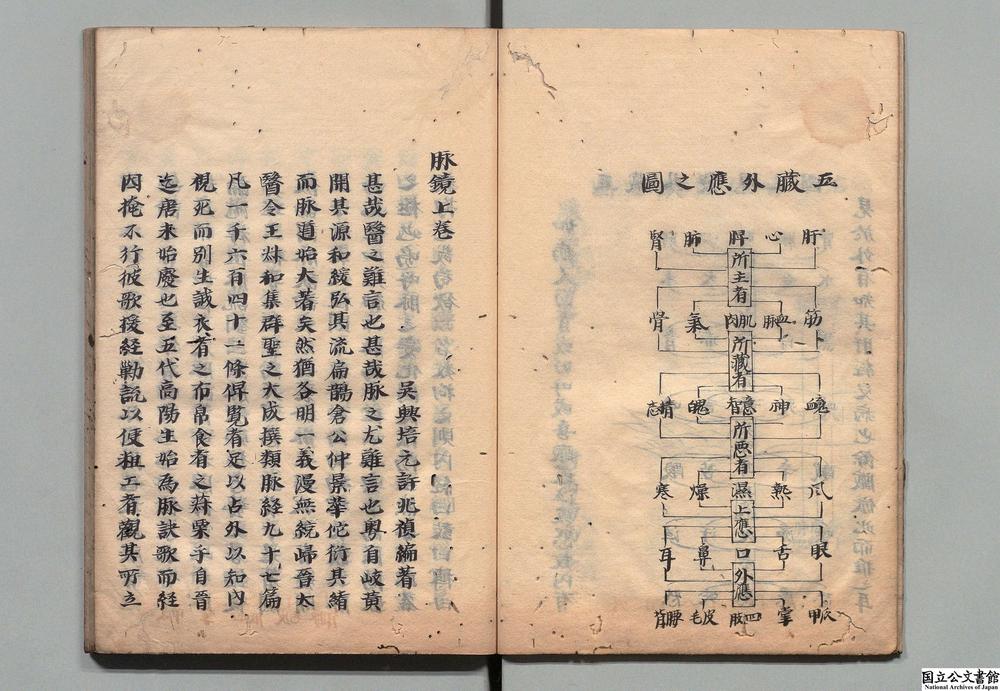 五臓外應之圖
肝 心 脾 肺 腎
所主者
筋 血脉 肌肉 氣 骨
所藏者
魂 神 意智 魄 精志
所悪者
風 熱 濕 燥 寒
上應
眼 舌 口 鼻 耳
外應
爪甲 掌 四肢 皮毛 腰背
脉鏡上巻
吳興培元許兆禎編著
甚哉醫之難言也甚哉脉之尤難言也粤自岐黄
開其源和緩弘其流扁鵲倉公仲景華佗衍其緒
而脉道始大著矣然猶各明一義漫無統歸晉太
醫令王叔和集群聖之大成撰類脉經九十七篇
凡一千六百四十一條俾覧者足以占外以知内
視死而別生誠衣者之布帛食者之菽粟乎自晉
迄唐未始廢也至五代高陽生始為脉訣歌而經
因掩不行彼歌援經勦説以便粗工者觀其所立
国立公文書館
National Archives of Japan